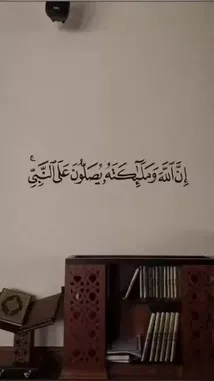 إِنَّ ٱللَّهَ وَمَلَـٰٓئِكَتَهُۥ يُصَلُّونَ عَلَى ٱلنَّبِىِّ ۚ